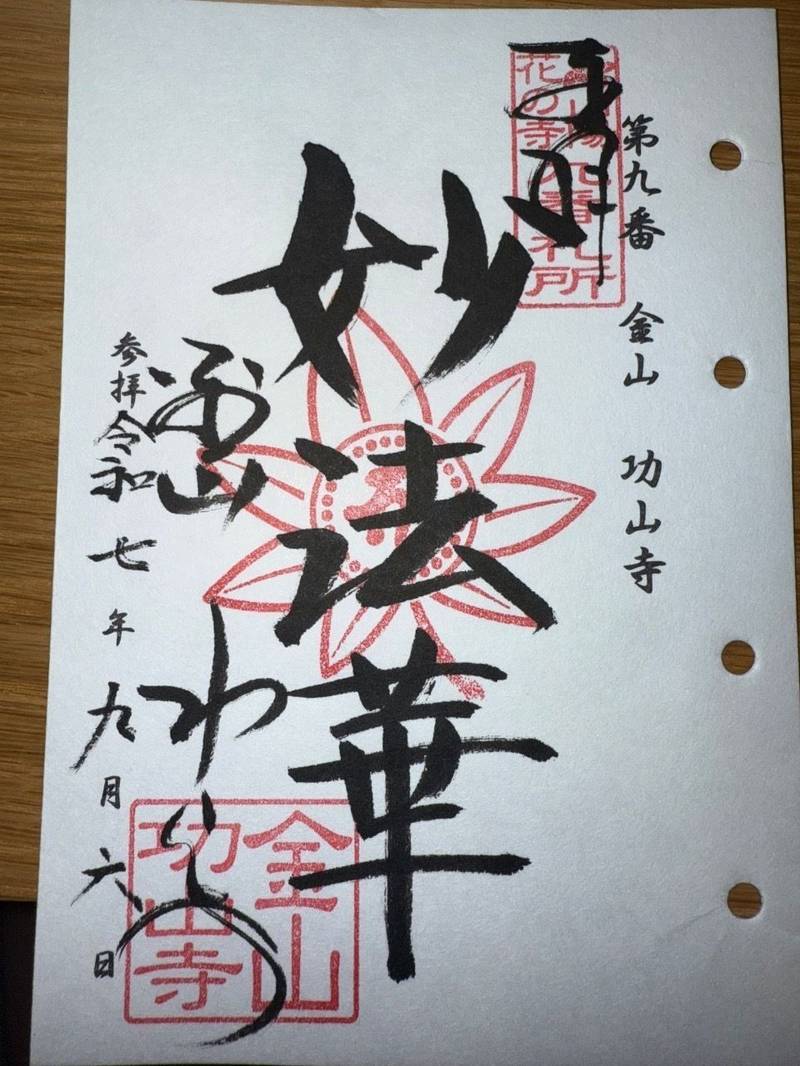 第九番 金山 功山寺
奉拝
山陽
花の寺
九番札所
妙法華
参拝令和七年九月六日
金山
功山寺